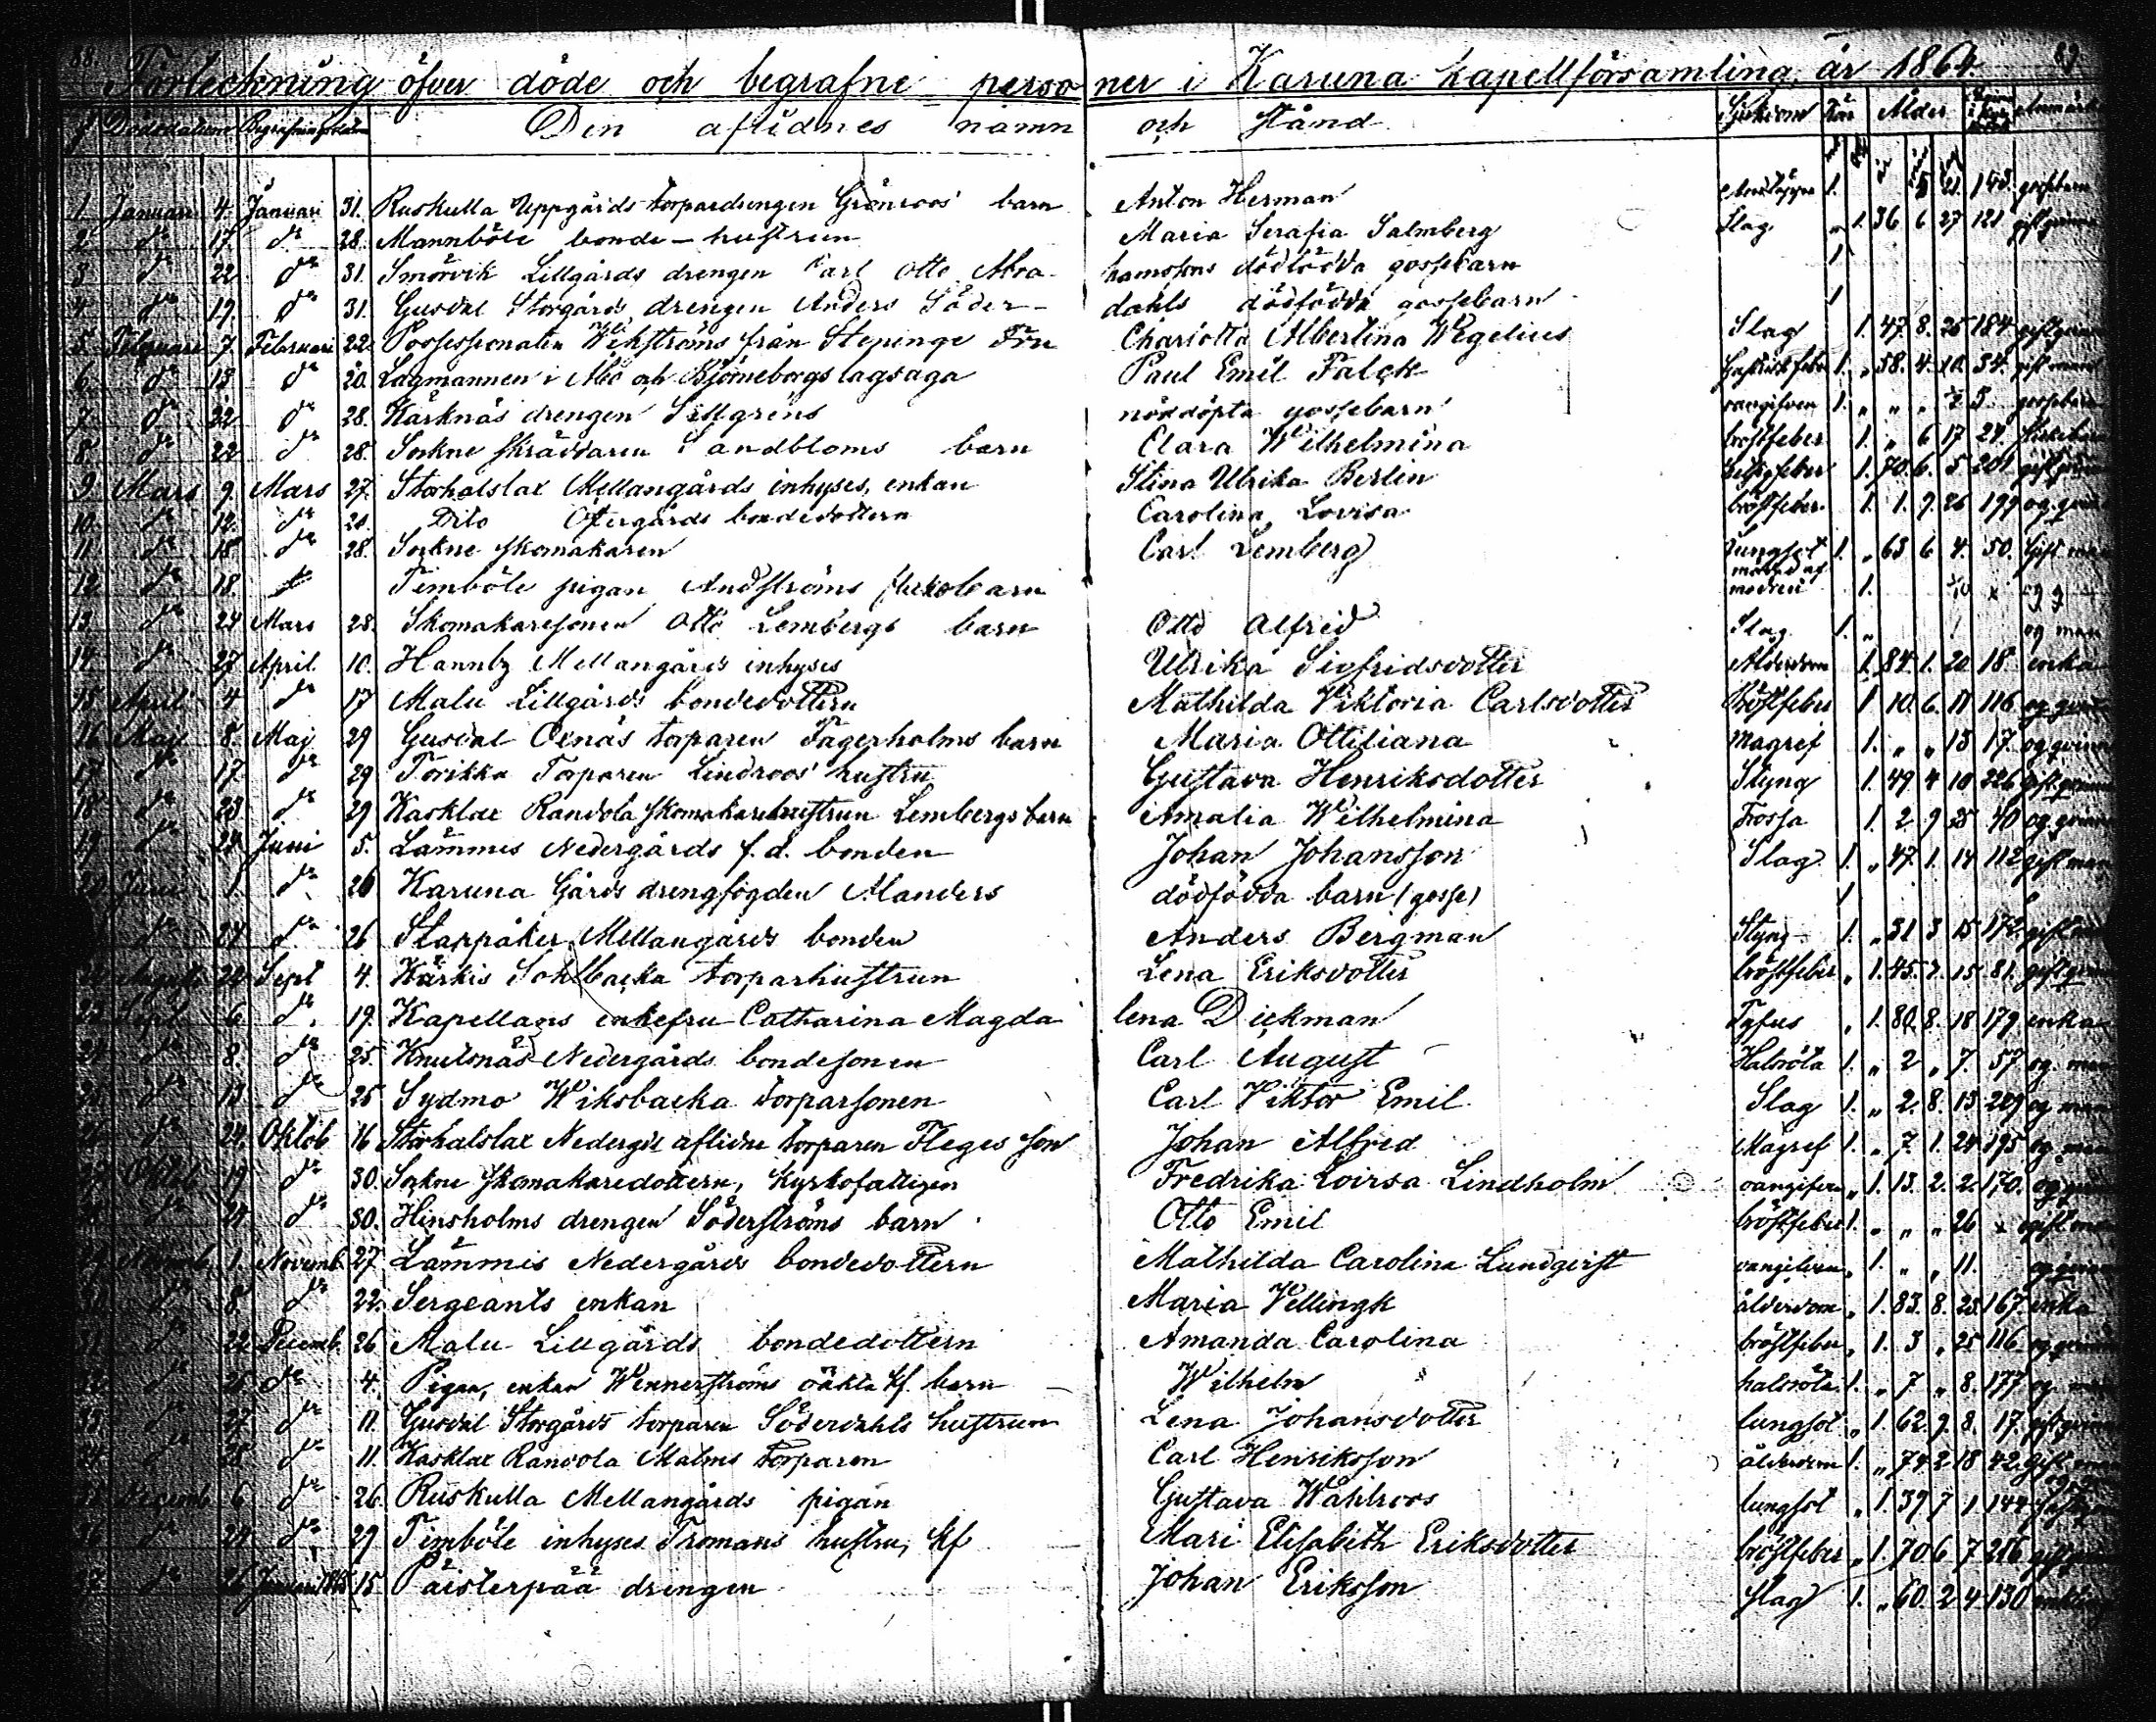 88. 89
Förteckning öfver döde och begrafne personer i Karuna kapellförsamling, år 1864.
Dödsdatum Begrafningsdatum Den aflidnes namn och stånd Sjukdom Kön Ålder
1. Januari 4. Januari 31. Ruskulla Uppgårds torparedrengen Grönroos' barn Anton Herman 1. 5 21. 143. gossebarn
2. do 17. do 28. Mannböle bonde-hustrun Maria Serafia Salmberg Slag „ 1. 36 6 27 121 gift qvinna
3 do 22 do 31. Smörvik Lillgårds drengen Carl Otto Abrahamssons dödfödda gossebarn 1
4. do 19. do 31. Gusdal Storgårds drengen Anders Söderdahls dödfödda gossebarn 1
5. Februari 7. Februari 22. Possessionaten Wikströms från Stepinge Fru Charlotta Albertina Wegelius Slag 1. 47. 8. 25 184 gift qvinna
6. do 13 do 20. Lagmannen i Åbo och Björneborgs lagsaga Paul Emil Falck 1. „ 58. 4. 10. 34. gift man
7. do 22 do 28. Kärknäs drengen Sillgrens nöddöpta gossebarn oangifven 1. „ „ „ 3. gossebarn
8. do 22 do 28. Sokne skräddaren Sandbloms barn Clara Wilhelmina bröstfeber 1. „ 6 17 24.
9. Mars 9. Mars 27. Storhalslax Mellangårds inhyses, enkan Stina Ulrika Berlin 1. 70. 6. 5. 201
10. do 12. do 28. Dito Öfvergårds bondedottern Carolina, Lovisa bröstfeber 1. 1. 9. 26 199 og. qvin
11. do 18 do 28. Sokne skomakaren Carl Lemberg lungsot 1. „ 63 6 4. 50. Gift man
12. do 18. Timböle pigan Andströms flickobarn modren 1.
13. do 24 Mars 28. Skomakaresonen Otto Lembergs barn Otto Alfred Slag 1. „ og man
14. do 27 April 10. Hannby Mellangårds inhyses Ulrika Sigfridsdotter Ålderdom 1. 84. 1. 20. 18. enka
15 April 4 do 17 Malu Lillgårds bondedottern Mathilda Viktoria Carlsdotter Bröstfeber 1 10. 6. 11 116 og qvin
16 Maj 8. Maj 29 Gusdal Oxnäs torparen Fagerholms barn Maria Ottiliana Magref 1. „ „ 13 17. og qvinna
17 do 17. do 29 Torikka Torparen Lindroos' hustru Gustava Henriksdotter Styng 1. 49 4 10 226 gift qvinna
18 do 23. do 29 Kasklax Randola skomakarehustrun Lembergs barn Amalia Wilhelmina Frossa 1. 2. 9 25 40 og qvinna
19 do 28 Juni 5. Lämmis Nedergårds f.d. bonden Johan Johansson Slag 1. „ 47. 1. 14 112 gift man
20 Juni 1. do 26 Karuna Gårds drengfogden Alanders dödfödda barn (gosse) 1
do 24 do 26 Stappåker Mellangårds bonden Anders Bergman Styng 1. „ 31 3 15 172 gift
Augusti 24 Sept 4. Kärkis Sohlbacka torparhustrun Lena Eriksdotter bröstfeber „ 1. 45. 7. 15 81. gift qvin
23 Sept. 6 do 19. Kapellans enkefru Catharina Magdalena Dickman Tyfus „ 1. 80. 8. 18 179 enka
24 do 8. do 25. Knutsnäs Nedergårds bondesonen Carl August Halsröta 1. „ 2 „ 7. 57 og. man
25 do 13. do 25 Sydmo Wiksbacka torparsonen Carl Viktor Emil Slag 1. „ 2. 8. 13 209 og man
26 do 24. Oktob 16 Storhalslax Nederg. aflidne torparen Fleges son Johan Alfred Magref 1. „ 7 1. 24 195 og. man
27 Oktob 19 do 30. Sokne skomakaredottern, Kyrkofattigen Fredrika Lovisa Lindholm oangifven „ 1. 13. 2. 2. 170.
28 do 24 do 30. Hinsholms drengen Söderströms barn Otto Emil bröstfeber 1. „ „ „ 26 x
29 Novemb. 1. Novemb. 27. Lämmis Nedergårds bondedottern Mathilda Carolina Lundqvist oangifven „ 1. „ „ 11. og qvin
30 do 8. do 22. Sergeants enkan Maria Vellingk ålderdom „ 1. 83. 8. 23. 167. enka
31 do 22 Decemb. 26 Malu Lillgårds bondedottern Amanda Carolina bröstfeber „ 1. 3 „ 25 116 og qvin
32 do 25 do 4. Pigan, enkan Wennerströms oäkta kf. barn Wilhelm halsröta 1. „ 7 „ 8. 177 og. man
33. do 27 do 11. Gusdal Storgårds torparen Söderdahls hustrun Lena Johansdotter lungsot „ 1. 62. 9 8. 17. gift qvin
34. do 28 do 11. Kasklax Randola Malms torparen Carl Henriksson ålderdom 1. „ 74 2 18 42. gift man
35 Decemb. 6 do 26. Ruskulla Mellangårds pigan Gustava Wahlroos lungsot „ 1. 39 7 1 144
36 do 24 do 29 Timböle inhyses Tromans hustru, kf Mari Elisabeth Eriksdotter bröstfeber „ 1. 70 6 7 216 gift qvin
do 26 Januari 1865 15 Päisterpää drengen Johan Eriksson slag 1. „ 60. 2 4 130 enkling